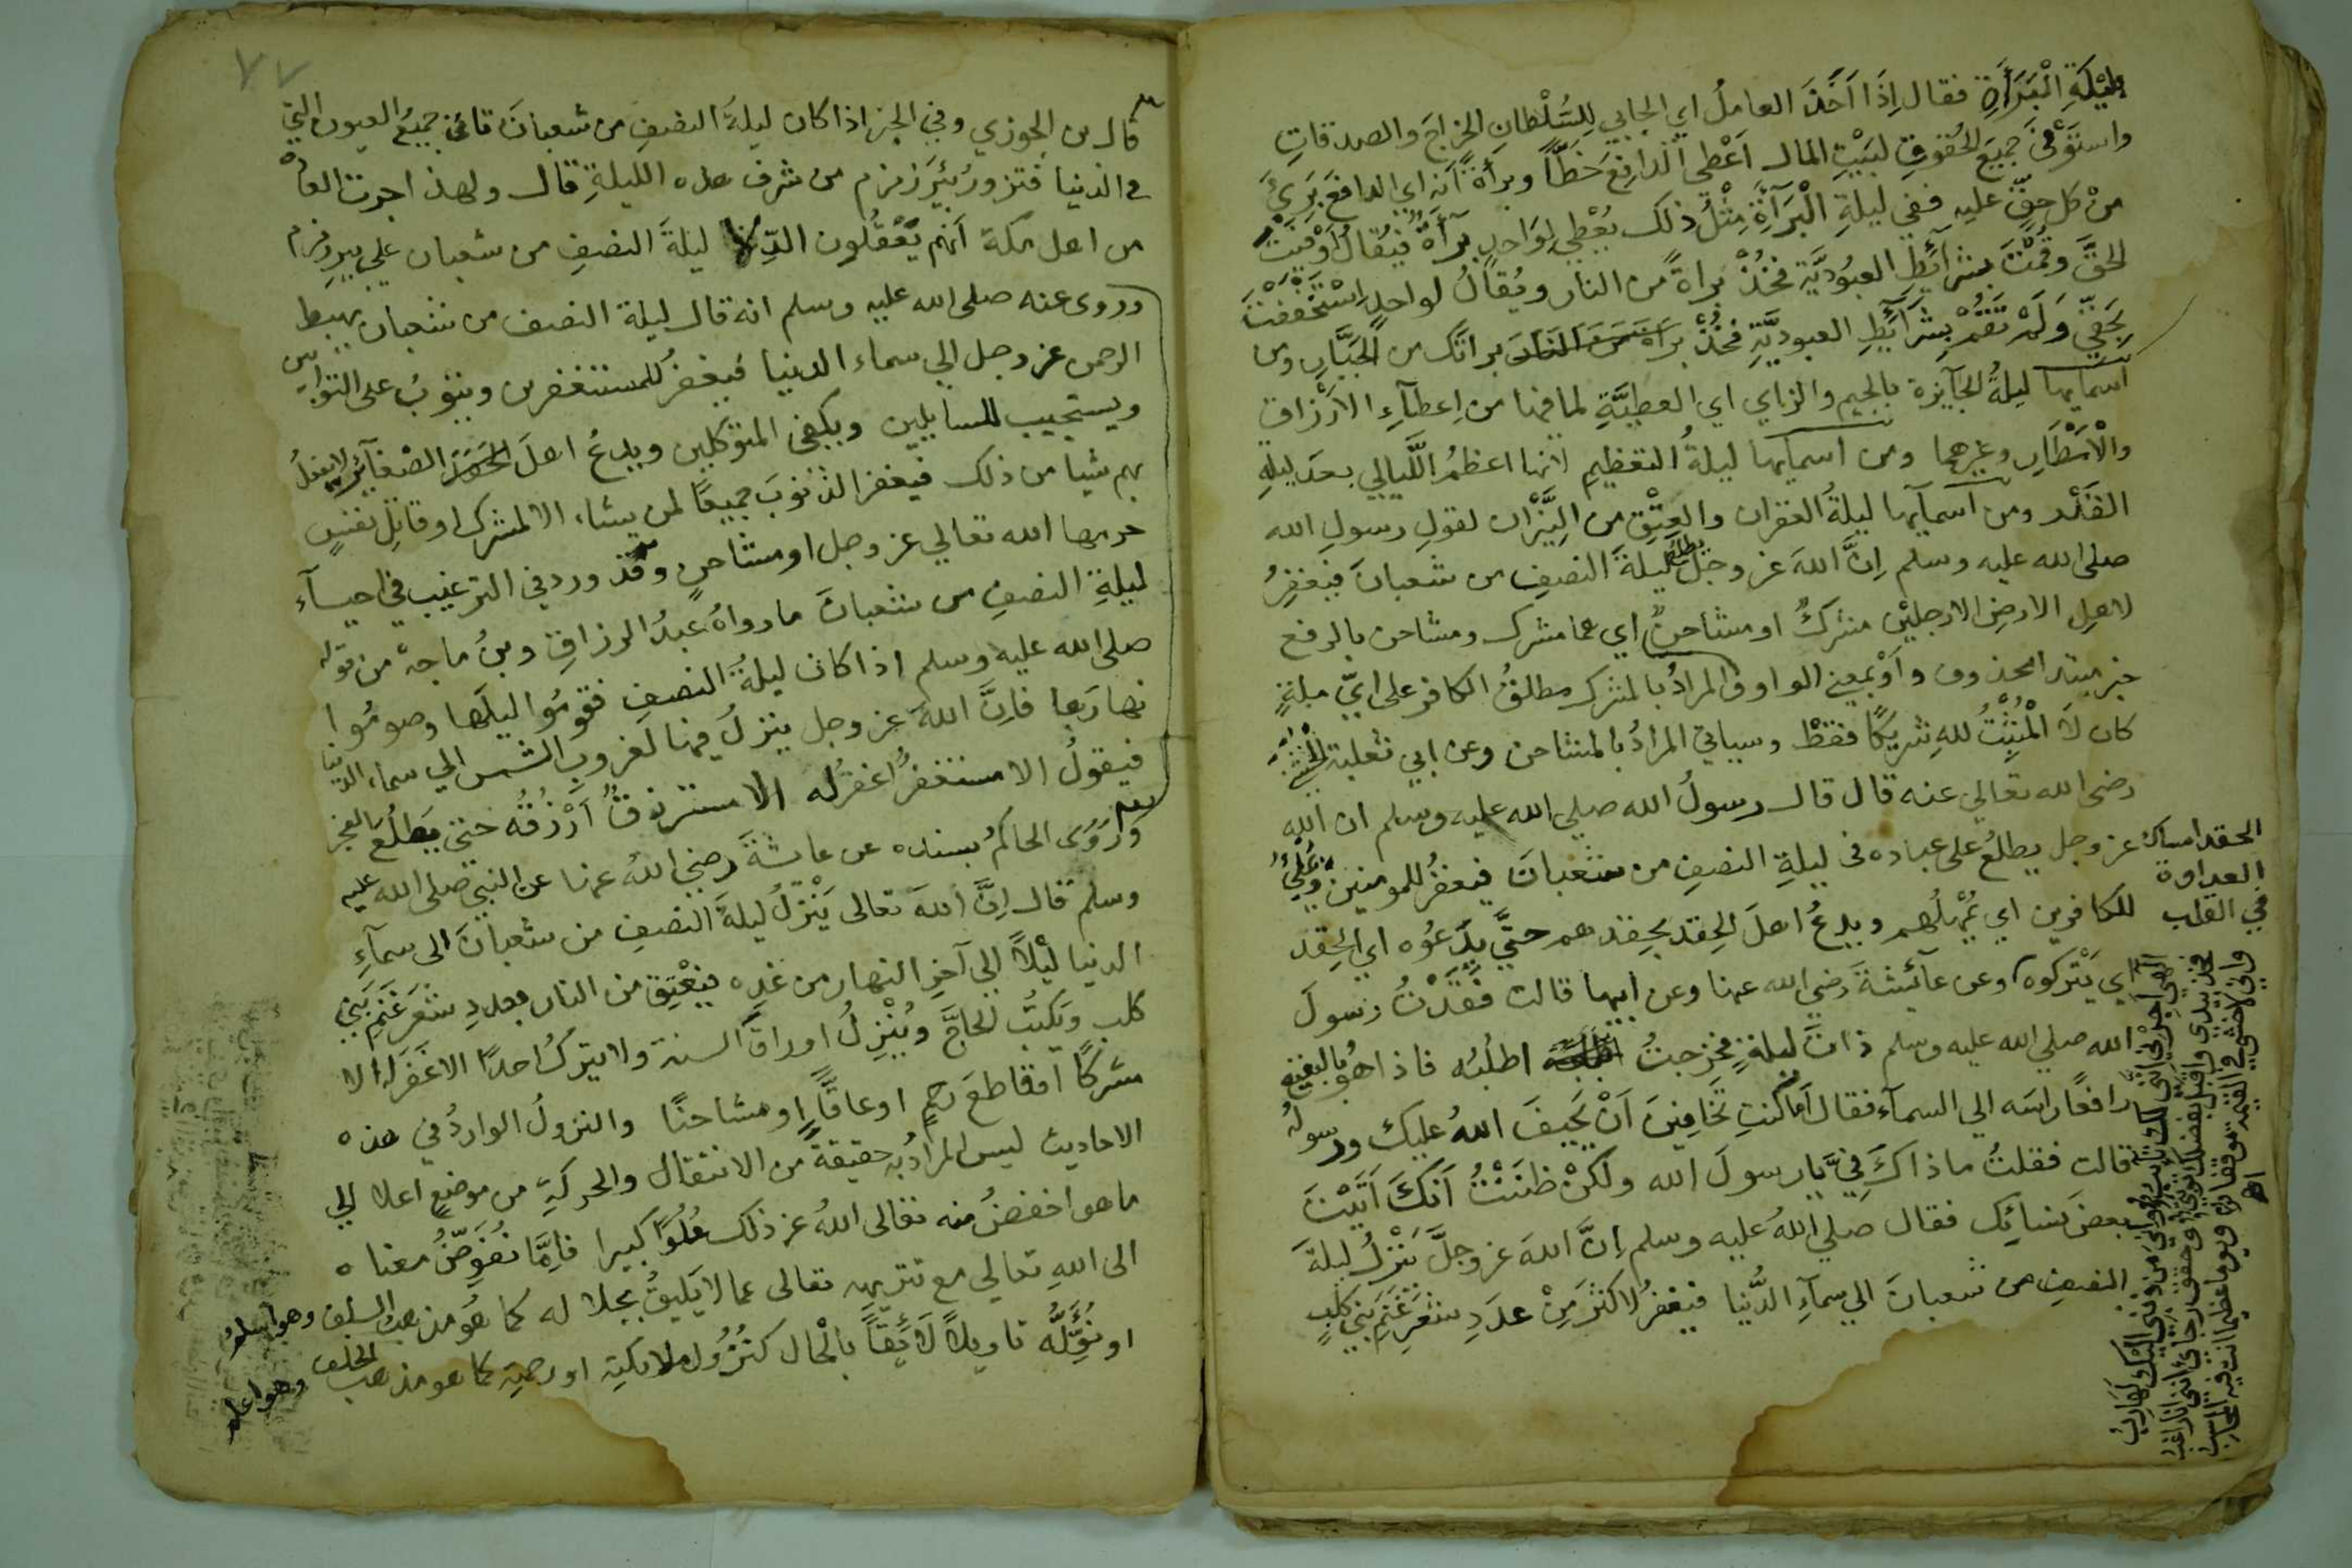 ليلة الْبَرَأَةِ فقال اِذَا اَخَذَ العاملُ اي الجابي لِلسُّلْطانِ الخراجَ والصدقاتِ
واستَوْفىَ جميعَ الحُقوقِ لبَيْتِ المال اَعْطى الدافِعَ خَطًّا وبرأةً اَنه اي الدافعَ بَرِئَ
من كل حقٍّ عليه ففي ليلةِ الْبَرَأَةِ مِثْلُ ذلك يُعْطي لِوَاحدٍ برأةٌ فيُقالُ اَوْفَيْتَ
الحقَّ وقُمْتَ بشرآئطِ العبُوديَّة فخُذْ براةً من النار ويُقالُ لواحدٍ اِسْتَخْفَفْتَ
بحَقّي وَلَمْ تَقُمْ بِشَرَآئطِ العبوديَّةِ فخُذْ براتَك من الجبَّارِ ومن
اسمايها ليلةُ الجآيزة بالجيم والزاي اي العطيَّةِ لما فيها من اِعطآءِ الارْزاق
والْاَمْطَارِ وغيرهما ومن اسمايها ليلةُ التعظيمِ لانها اعظمُ اللَّيالي بعدَ ليلةِ
القَدْر ومن اسمآيها ليلةُ الغفران والعِتْقِ من النِّيْران لقولِ رسولِ الله
صلى الله عليه وسلم اِنَّ اللهَ عز وجلَّ يطلع ليلةَ النصفِ من شعبانَ فيغفِرُ
لاهلِ الارضِ الا رجليْن مشركٌ او مشاحنٌ اي هما مشرك ومشاحن بالرفع
خبر مبتدا محذوف وأَوْ بمعني الواو والمرادُ بالمشرك مطلقُ الكافر على ايّ ملةٍ
كان لاَ الْمُثْبِتُ للهِ شريكًا فقطْ وسياتي المرادُ بالمشاحن وعن ابي ثعلبة
رضي الله تعالي عنه قال قال رسولُ الله صلي الله عليه وسلم ان الله
عز وجل يطلعُ على عباده في ليلةِ النصفِ من شعبانَ فيغفرُ للمومنين ويُمْلِي
للكافرين اي يُمْهلُهم ويدعُ اهلَ الحِقد بحِقدهم حتَّي يدَعُوه اي الحِقد
اي يَتْركوه وعن عآئشةَ رضي الله عنها وعن ابيها قالت فَقَدْتُ رسولَ
الله صلي الله عليه وسلم ذاتَ ليلةٍ فخرجتُ اطلبُه فاذا هُو بالبقيع
رافعًا راسَه الي السمآء فقال اَما كُنتِ تَخَافِينَ اَنْ يَحِيفَ اللهُ عليك ورسولُه
قالت فقلتُ ماذاكَ فيَّ يارسولَ الله ولكنْ ظننْتُ اَنكَ اَتَيْتَ
بعضَ نسائِك فقال صلي اللهُ عليه وسلم اِنَّ اللهَ عز وجلَّ يَنْزلُ ليلةَ
النصفِ من شعبانَ الي سمآءِ الدُّنيا فيغفرُ لاكثرَ مِنْ عدَدِ شَعْرِ غَنَمِ بَني كلبٍ
الحقد امساك
العداوة
في القلب
٧٧
قال بن الجوزي وفي الخبر اذا كان ليلةُ النصفِ من شعبانَ جميعُ العيون التي
في الدنيا فتزورُ بئرَ زمزم من شرف هذه الليلةِ قال ولهذا جرت
من اهل مكة اَنهم ليلةَ النصفِ من شعبان علي بير زمزم
وروى عنه صلى الله عليه وسلم انه قال ليلة النصف من شعبان يهبط
الرحمن عز وجل الي سماء الدنيا فيغفرُ للمستغفرين ويتوبُ على التوابين
ويستجيب للسايلين ويكفي المتوكلين ويدعُ اهلَ الضغآئن لايفعلُ
بهم شيا من ذلك فيغفر الذنوبَ جميعًا لمن يشاء الا لمشرك او قاتِل نفسٍ
حرمها الله تعالي عز وجل او مشاحنٍ وقد ورد في الترغيب في احيآء
ليلةِ النصفِ من شعبانَ ما رواهُ عبدُ الرزاقِ وبنُ ماجة من قوله
صلى الله عليه وسلم اذا كان ليلةُ النصفِ فقومُوا ليلَها وصومُوا
نهارَها فانَّ اللهَ عز وجل ينزلُ فيها لغروبِ الشمس الي سماء الدنيا
فيقولُ الا مستغفرٌ اغفرُ له الا مسترزقٌ اَرْزُقُه حتي يطلُعَ الفجر
وَرَوَى الحاكمُ بسنده عن عايشةَ رضي اللهُ عنها عن النبي صلى الله عليه
وسلم قال اِنَّ اللهَ تعالى يَنْزلُ ليلةَ النصفِ من شعبانَ الى سمآءِ
الدنيا لَيْلاً الي آخرِ النهار من غدِه فيُعْتِق من النار بعددِ شَعْرِ غَنَمِ بَني
كلب ويَكتُبُ الحاجَّ ويُنْزِلُ اوراقَ السنة ولا يترك احدًا الا غَفَرَ له الا
مشركًا اَوْ قاطعَ رَحِمٍ او عاقًّا او مشاحنًا والنزولُ الواردُ في هذه
الاحاديث ليس المرادُ به حقيقةً من الانتقال والحركةِ من موضعٍ اعلا الي
ما هو اخفضُ منه تعالى اللهُ عن ذلك عُلُوًّا كبيرا فاِمَّا نُفَوِّضُ معناه
الى اللهِ تعالي مع تنزيهه تعالى عما لا يَليقُ بجلاله كما هُو مذهب السلف وهو اسلم
او نُؤَوِّلُه تاويلاً لاَئقًا بالْحال كنُزُول ملايكته او رحمته كما هو مذهب الخلف وهو اعلم